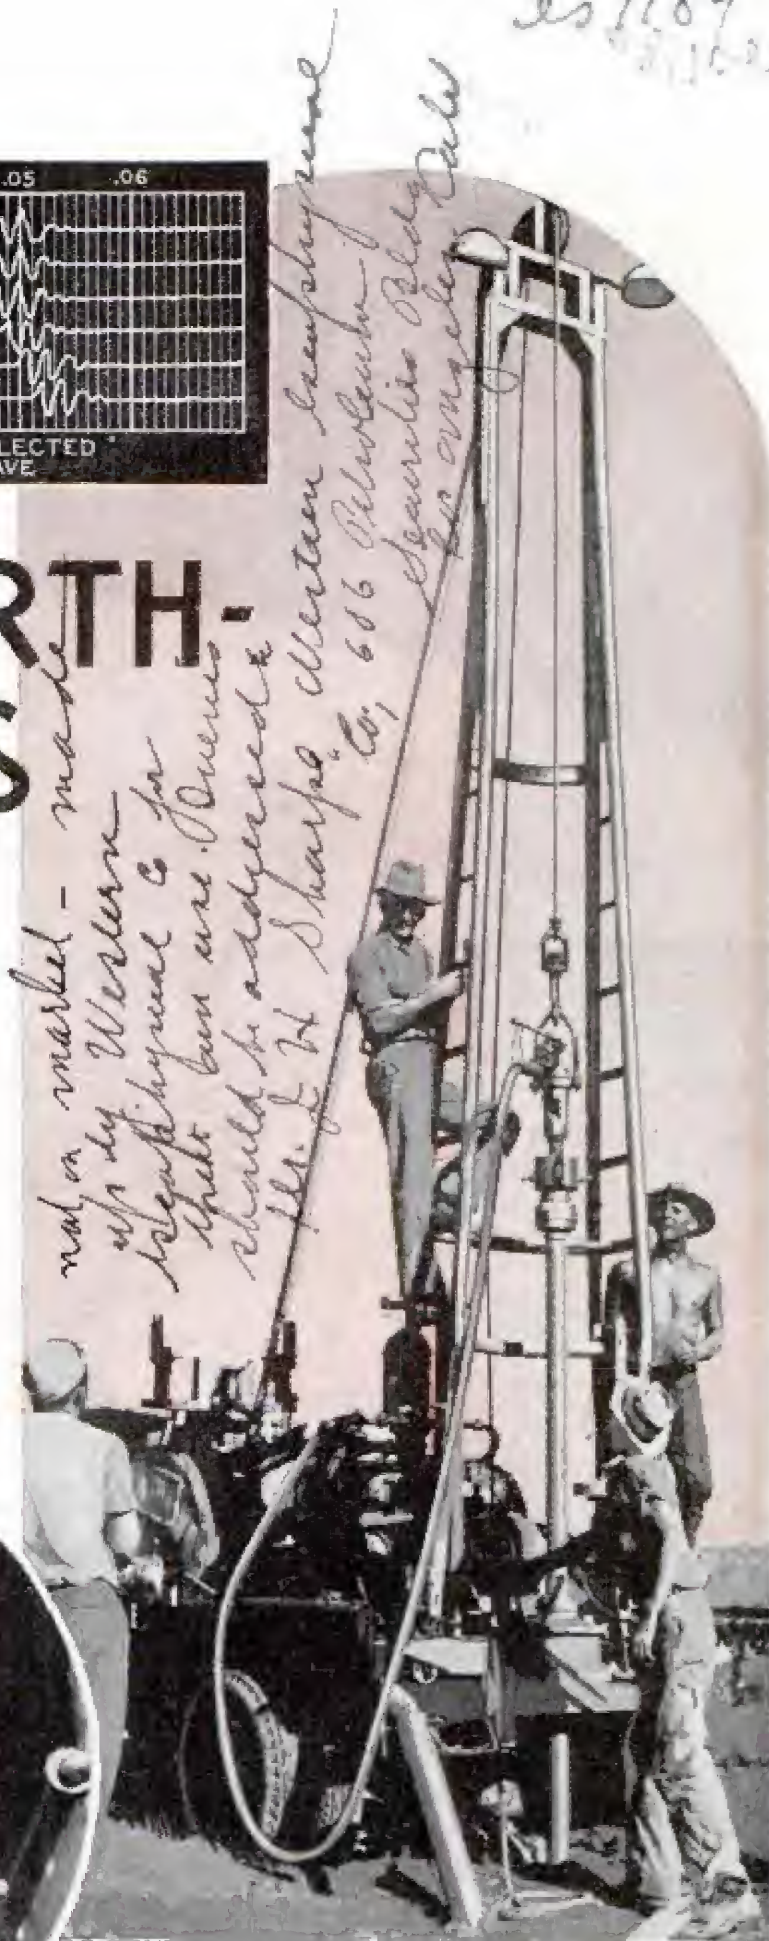 .05 .06
LECTED
AVE
RTH-
S
not on market - made
up by Western
Geophysical Co for
their own use. Queries
should be addressed to
Mr. J H Sharpe, Western Geophysical
Co, 606 Petroleum
Securities Bldg
Los Angeles Calif